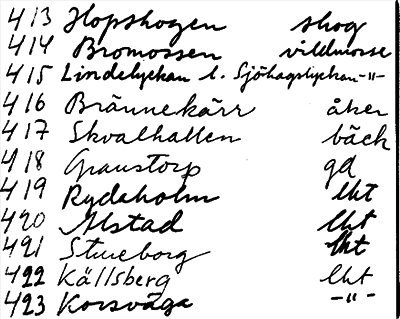 413 Hopskogen skog
414 Bromossen vildmosse
415 Lindelyckan l. Sjöhagslyckan -"-
416 Brännekärr åker
417 Skvalhallen bäck
418 Granstorp gd
419 Rydaholm lht
420 Alstad lht
421 Stureborg lht
422 Källsberg lht
423 Korsväga -"-